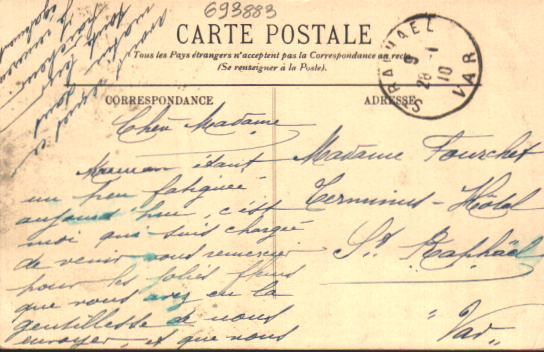 693883
CARTE POSTALE
Tous les Pays étrangers n'acceptent pas la Correspondance au recto
(Se renseigner à la Poste).
CORRESPONDANCE
ADRESSE
St RAPHAEL
5
28 -1
10
VAR
Chère Madame
Maman étant
un peu fatiguée
aujourd'hui, c'est
moi qui suis chargée
de venir vous remercier
pour les jolies fleurs
que vous avez eu la
gentillesse de nous
envoyer, et que nous
Madame Fourchet
Terminus-Hôtel
St Raphaël
" Var "